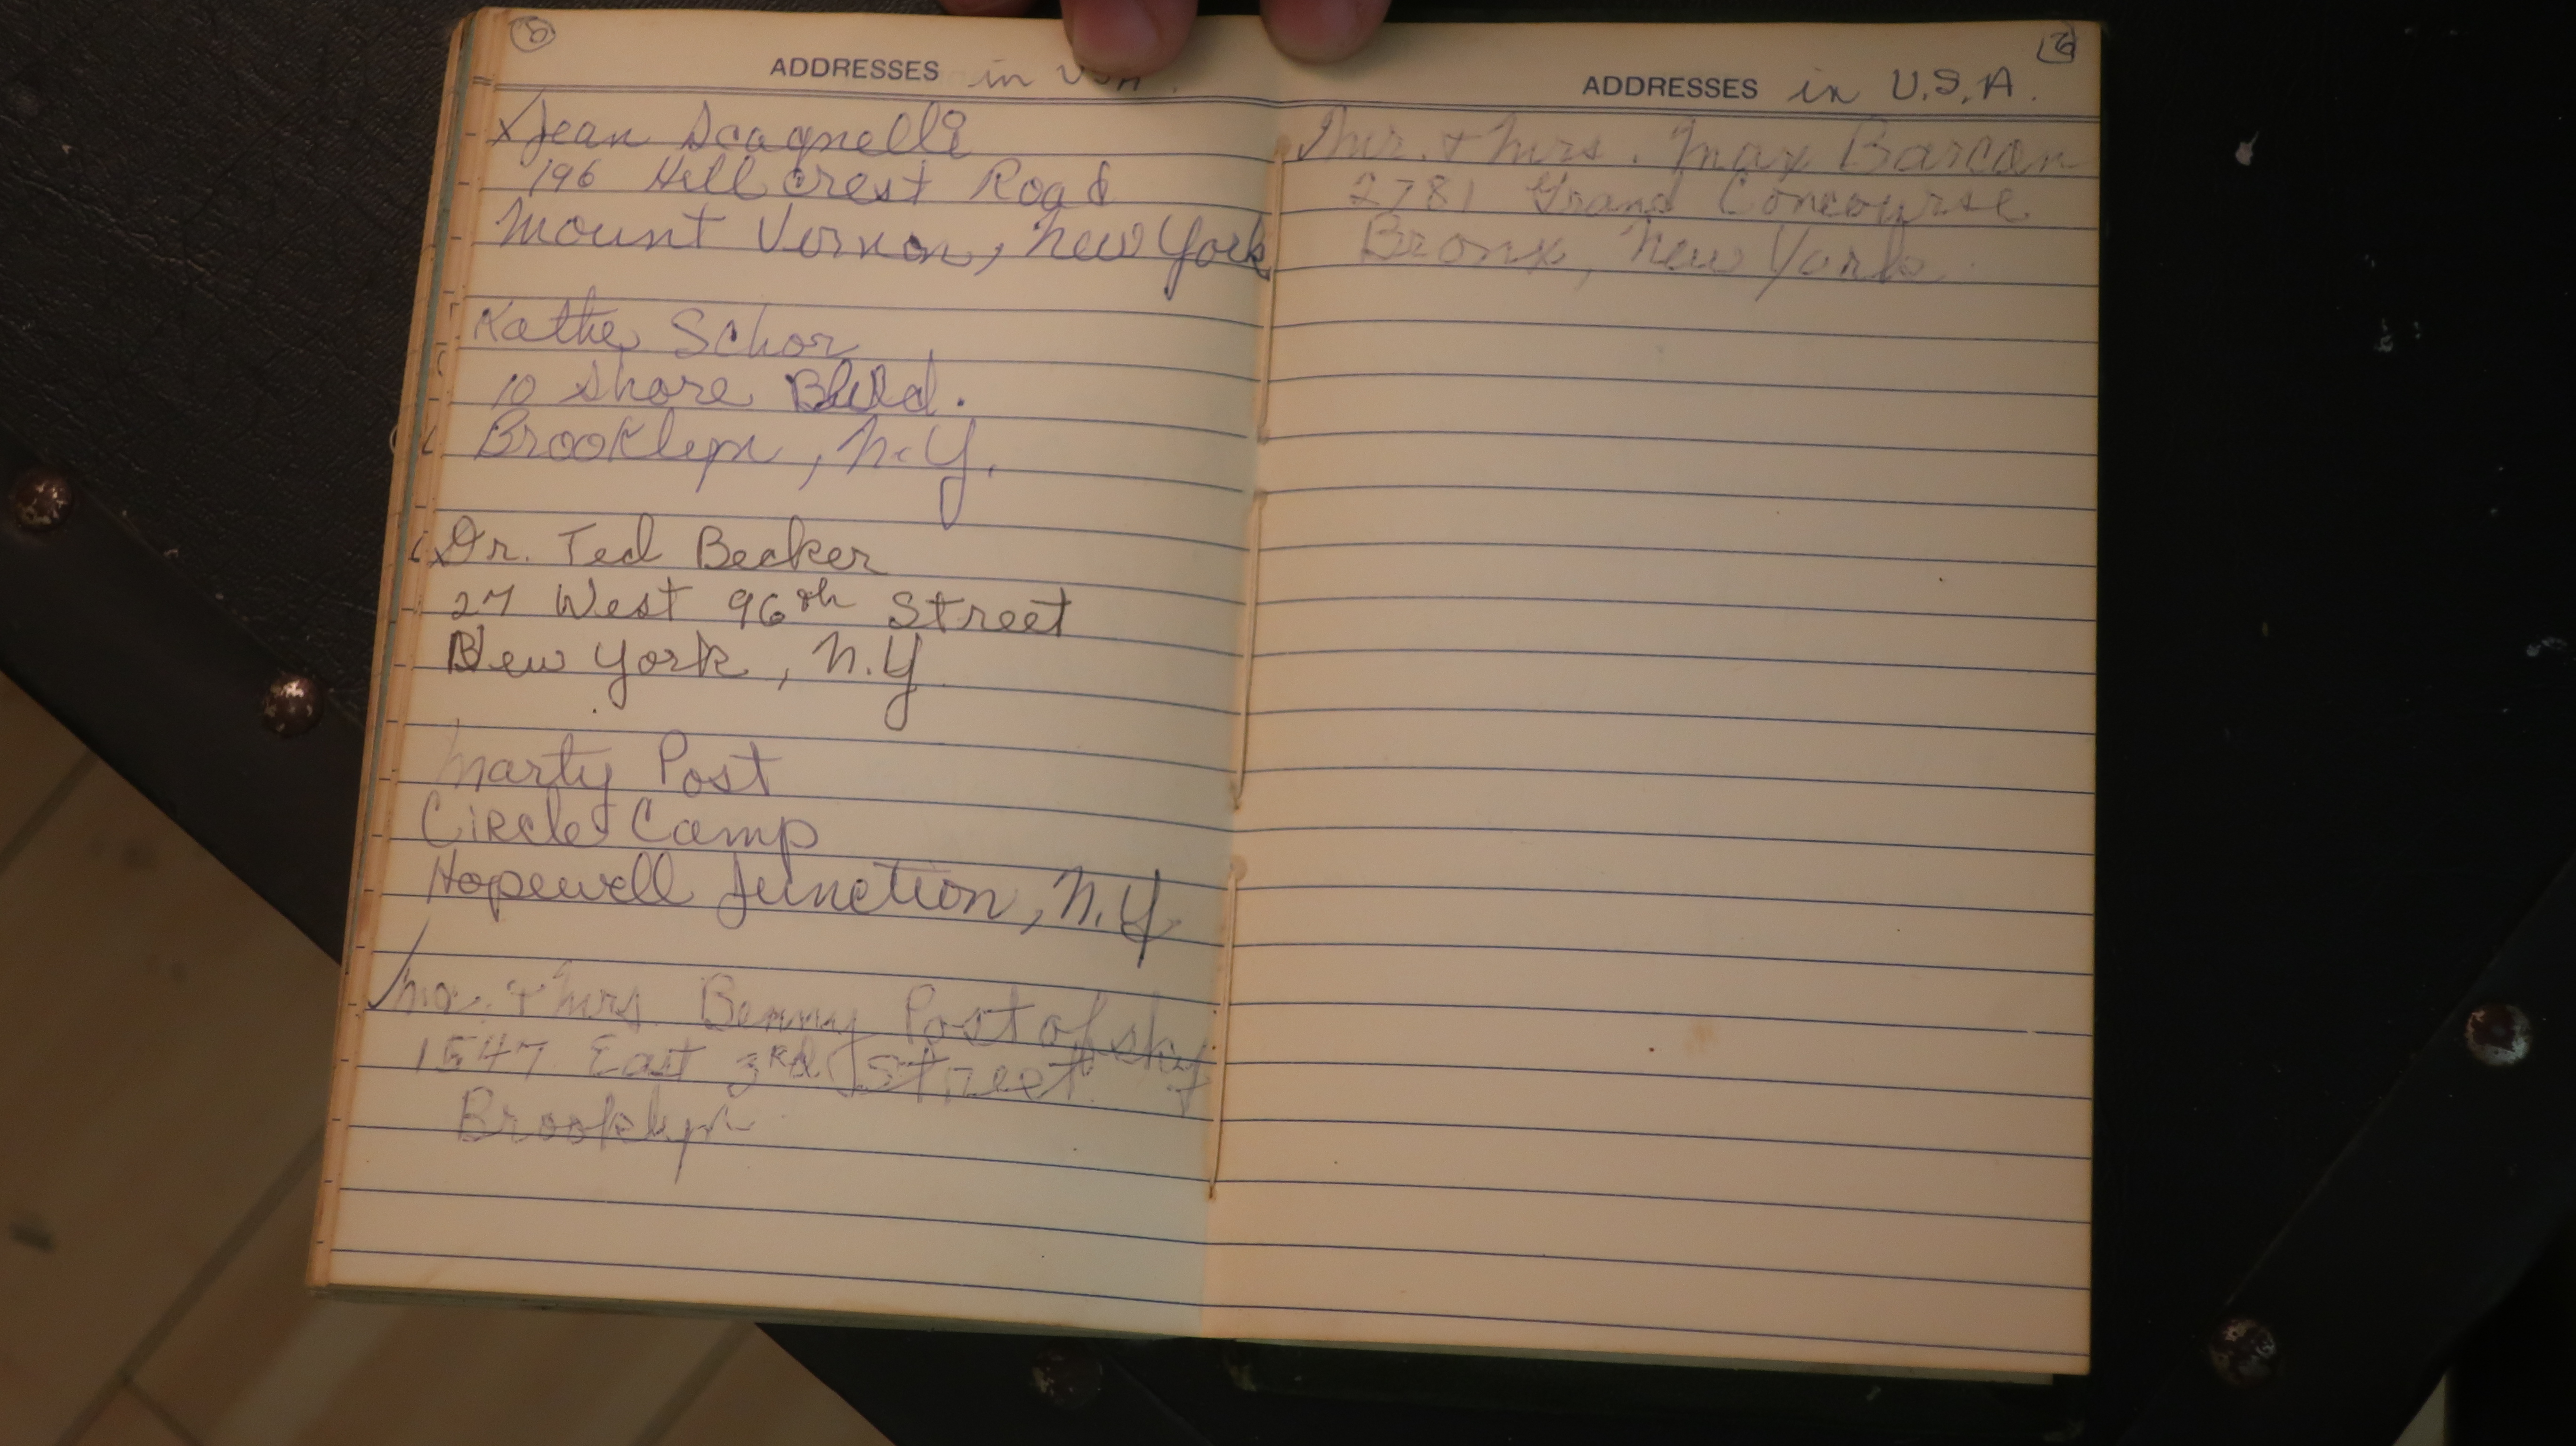 5
ADDRESSES in USA.
x Jean Scagnelli
196 Hillcrest Road
Mount Vernon, New York
Kathe Schor
10 Shore Blvd.
Brooklyn, N.Y.
x Dr. Ted Becker
27 West 96th Street
New York, N.Y
Marty Post
Circle Camp
Hopewell Junction, N.Y
Mr. + Mrs. Benny Postofsky
1547 East 3Rd Street
Brooklyn
6
ADDRESSES in U.S.A.
Mr. + Mrs. Max Barcan
2781 Grand Concourse
Bronx, New York